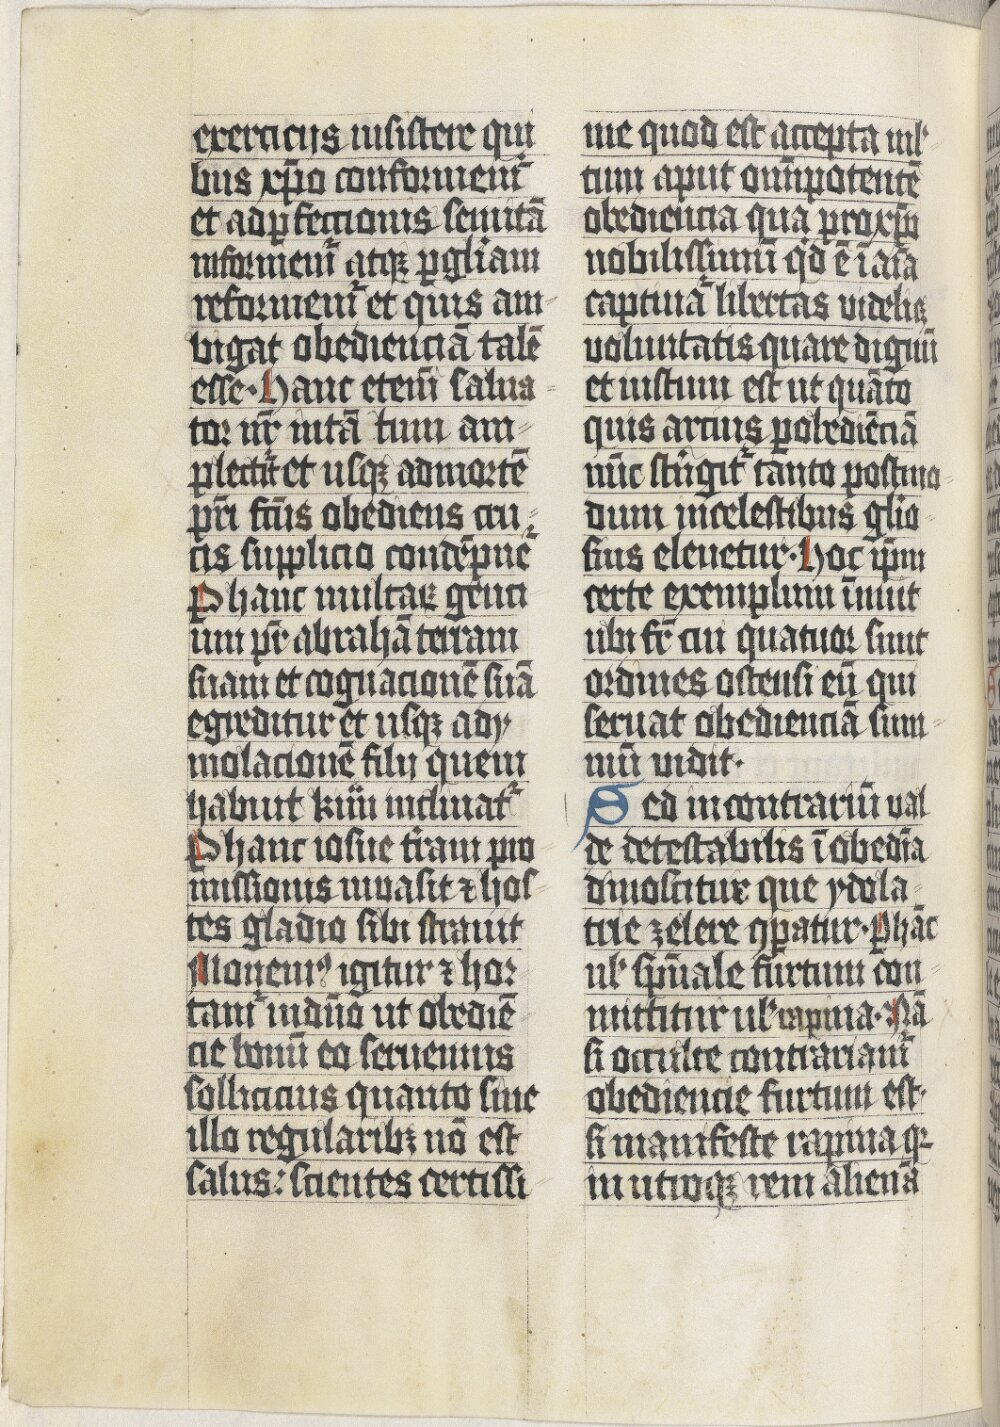 exerciciis insistere qui
bus xp̄o conformem̄
et ad ꝑfectionis semitā
informem̄ atqꝫ ꝑ gl̄iam
reformem̄ et quis am
bigat obedienciā talē
esse· Hanc eteni̅ salua
tor nr̄ in tātum am
plectit̄ et usqꝫ ad mortē
pr̄i fc̄us obediens cru
cis supplicio condēpnē
Ꝑ hanc multaꝝ genci
um pr̄ abrahā terram
suam et cognacionē suā
egreditur et usqꝫ ad y
molacionē filii quem
habuit kīm̄ inclinat̄
Ꝑ hanc iosue t̄ram pro
missionis inuasit ⁊ hos
tes gladio sibi strauit
Monem᷒ igitur ⁊ hor
tam̄ in dn̄o ut obediē
cie bonū eo seruemus
sollicicius quanto sine
illo regularibꝫ nō est
salus: scientes certissi
me quod est accepta ml̓
tum aput om̄ipotentē
obediencia qua pro xp̄o
nobilissimū qd̄ ē ī aīa
captiuat̄ libertas videliꝫ
voluntatis quare dignū
et iustum est ut quāto
quis arcius ꝑ obediēciā
nūc strīgit̄ tanto postmo
dum in celestibus glio
sius eleuetur· Hoc ip̄m
certe exemplum īnuit
ubi fr̄ cui quatuor sunt
ordines ostensi eū qui
seruat obedienciā sum
mū vidit·
Sed in contrariū val
de detestabilis īobediā
dinoscitur que ydola
trie zelere ꝯpatur· Ꝑ hāc
ul̓ sp̄uale furtum con
mittitur ul̓ rapina· Nā
si occulte contrariam̄
obediencie furtum est·
si manifeste rapina qr̄
in utroqꝫ rem alienā